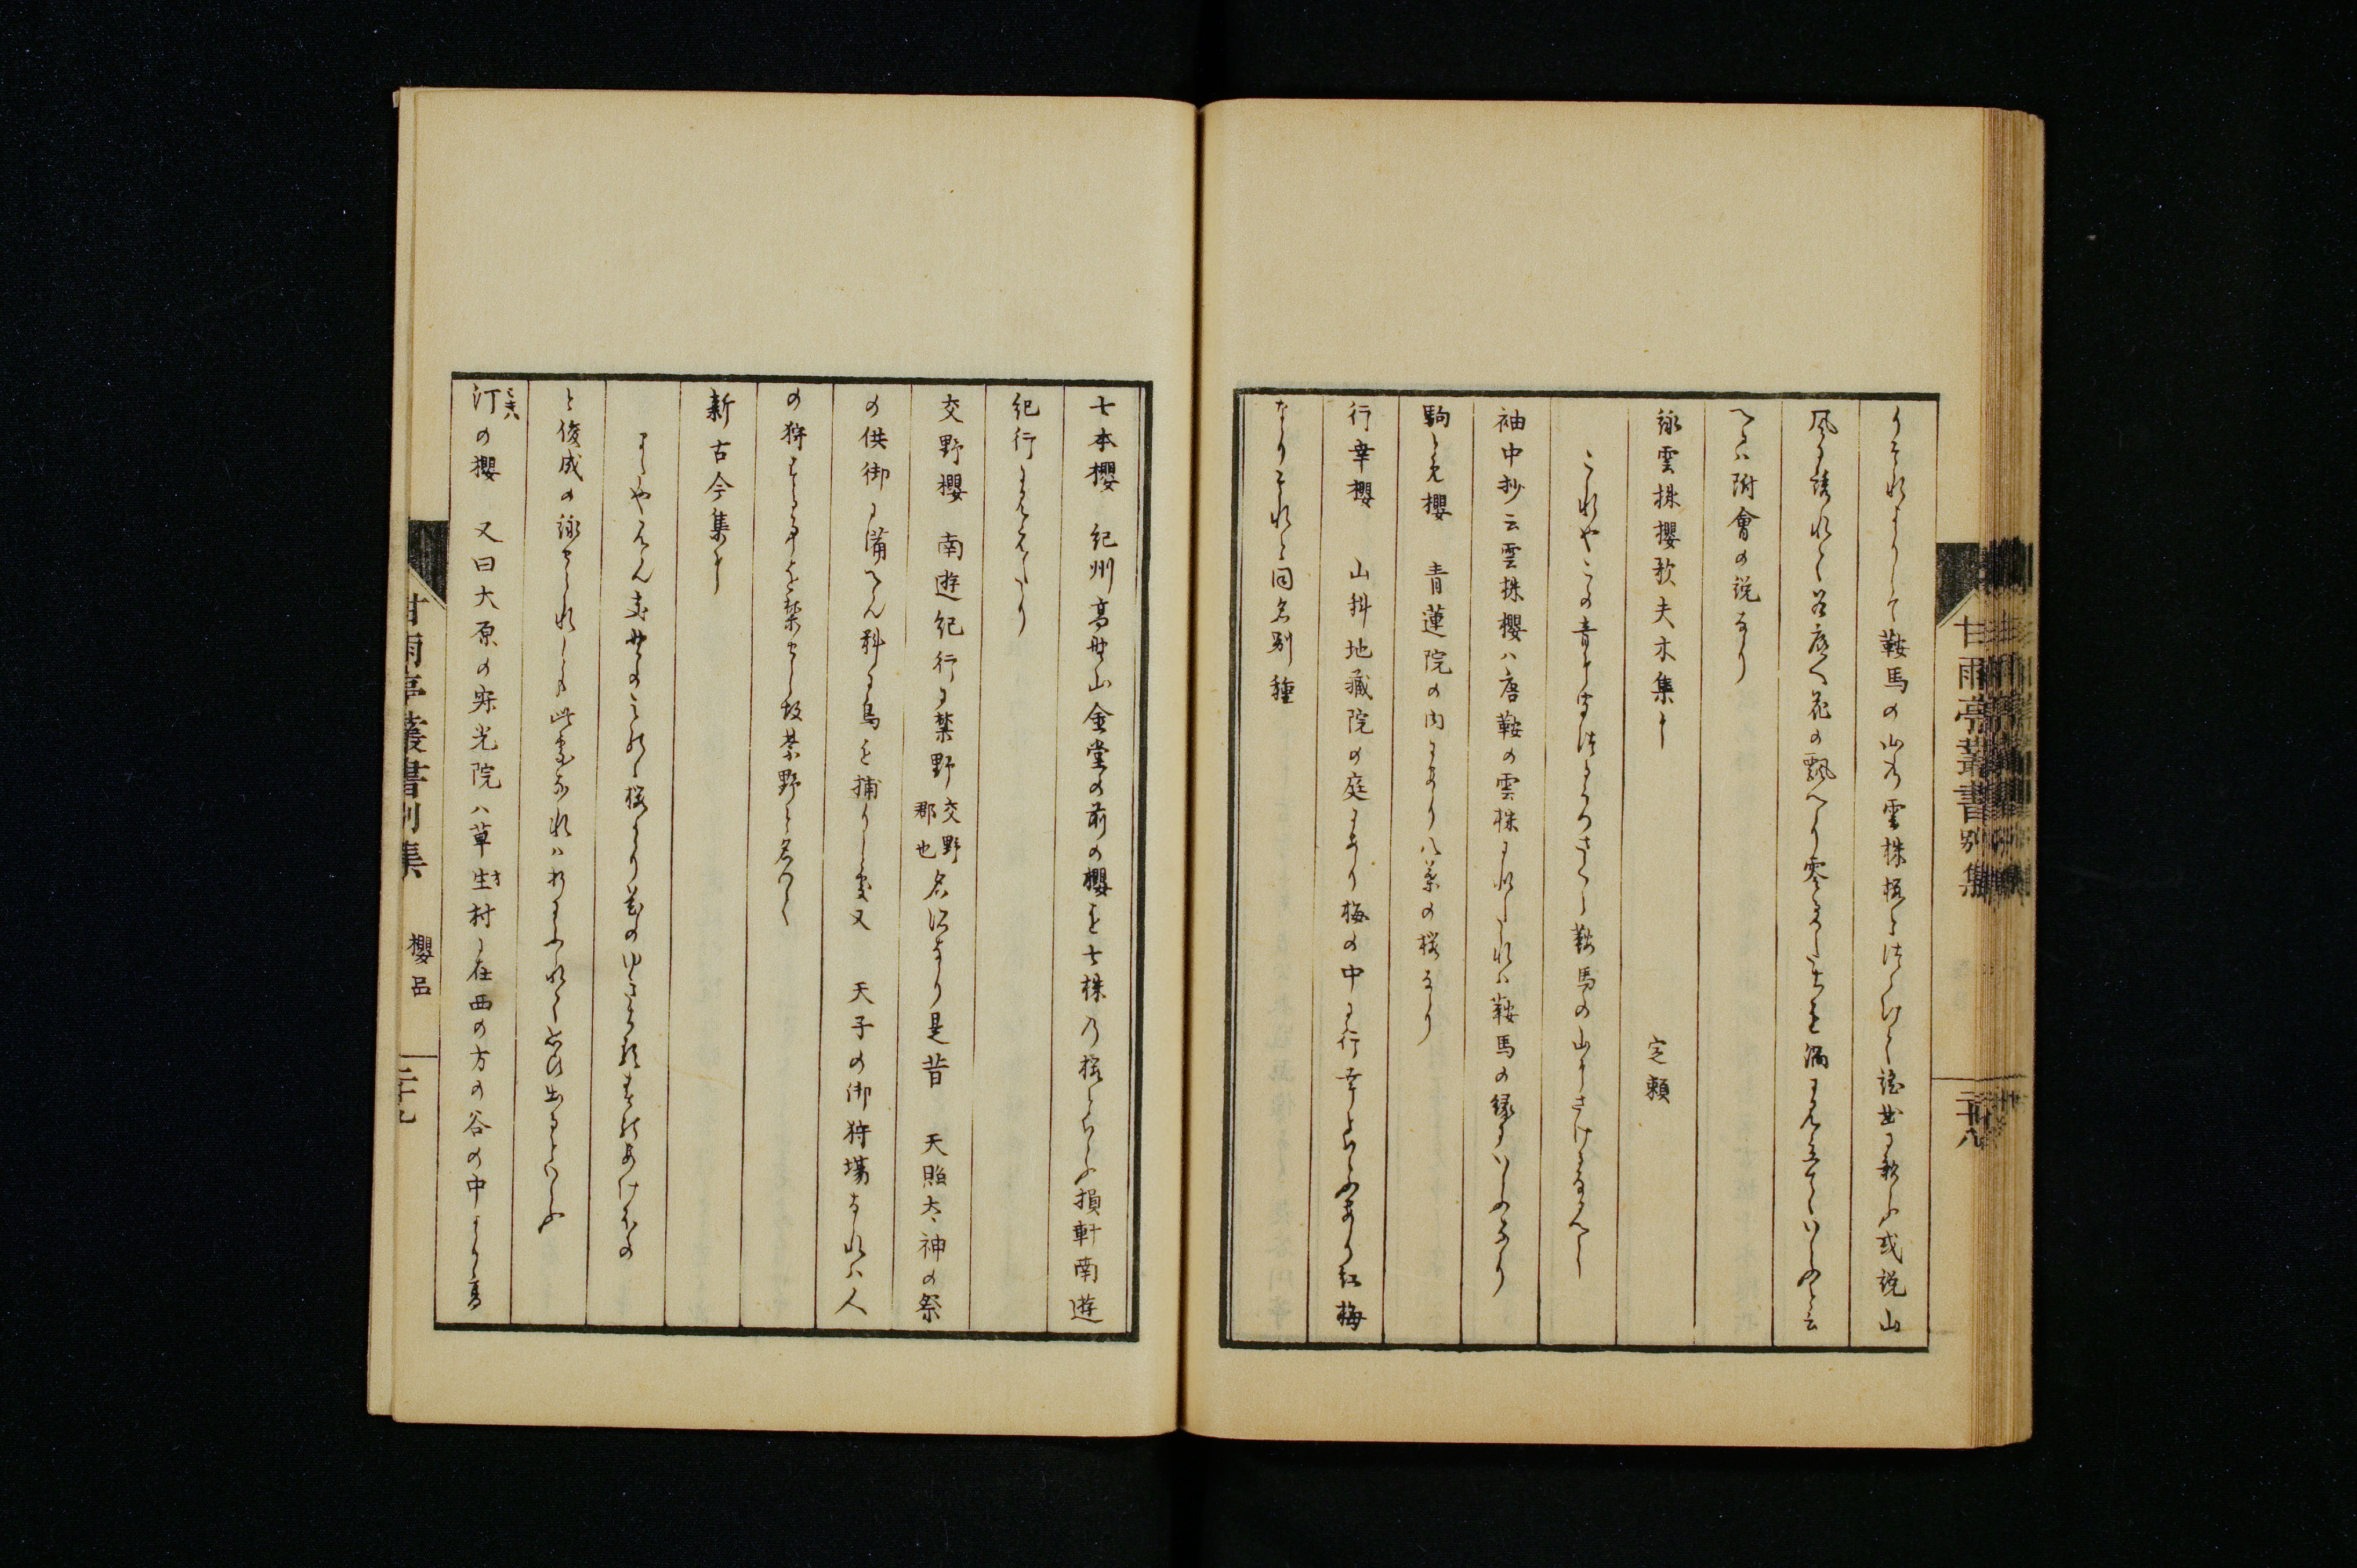 うそれよりして鞍馬の山乃雲株桜とはいけく謡曲に歌ふ或説山
風に誘れく谷底へ花の飄へり零るさまを渦に見立ていふと云
へるハ附會の説なり
詠雲株櫻歌夫木集に
定頼
これやこの音にきく雲珠さくら鞍馬の山にさけるなるへし
袖中抄云雲株櫻ハ唐鞍の雲株に似たれハ鞍馬の縁にいふなり
駒とめ櫻 青蓮院の内にあり八重の桜なり
行幸櫻 山科地蔵院の庭にあり梅の中に行幸といふあり紅梅
なりこれと同名別種
甘雨亭叢書別集 二十八
七本櫻 紀州高野山金堂の前の櫻を七株乃桜といふ損軒南遊
紀行に見えたり
交野櫻 南遊紀行に禁野交野郡也名所なり是昔 天照太神の祭
の供御に備へん料に鳥を捕りし處又 天子の御狩場なれハ人
の狩することを禁せし故禁野と名つく
新古今集に
またや見ん交野のみのゝ桜かり花の雪ちる春のあけほの
と俊成の詠せられしも此處なれハ折にふれて思ひ出るといふ
汀の櫻 又曰大原の寂光院ハ草生村に在西の方の谷の中より高
甘雨亭叢書別集 櫻品 二十九